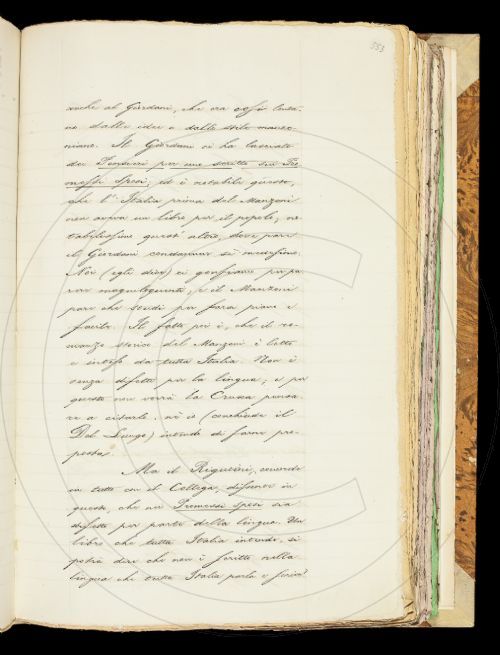 553
anche al Giordani, che era così lonta-
no dalle idee e dallo stile manzo-
niano. Il Giordani ci ha lasciato
dei Pensieri per uno scritto sui Pro-
messi Sposi; ed è notabile questo,
che l'Italia prima del Manzoni
non aveva un libro per il popolo; no-
tabilissimo quest'altro, dove pare
il Giordani condannar sè medesimo.
Noi (egli dice) ci gonfiamo per pa-
rer magniloquenti, e il Manzoni
pare che studi per farsi piano e
facile. Il fatto poi è, che il ro-
manzo storico del Manzoni è letto
e inteso da tutta Italia. Non è
senza difetti per la lingua; e per
questo non vorrà la Crusca pensa-
re a citarlo: nè io (conchiude il
Del Lungo) intendo di farne pro-
posta.
Ma il Rigutini, convenendo
in tutto con il Collega, dissente in
questo, che nei Promessi Sposi sia
difetto per parte della lingua. Un
libro che tutta Italia intende, si
potrà dire che non è scritto nella
lingua che tutta Italia parla e scrive?